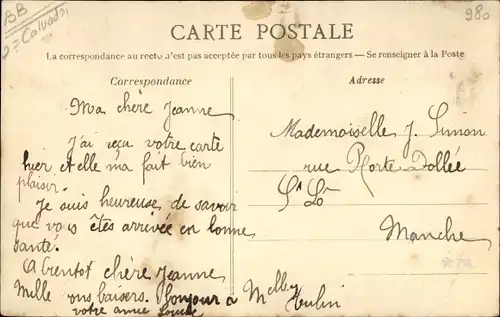 BB
Calvados
980
CARTE POSTALE
La correspondance au recto n'est pas acceptée par tous les pays étrangers — Se renseigner à la Poste
Correspondance
Adresse
Ma chère Jeanne
J'ai reçu votre carte
hier et elle ma fait bien
plaisir.
Je suis heureuse de savoir
que vous êtes arrivée en bonne
santé.
A bientot chère Jeanne
Mille bons baisers. Bonjour à Melle
votre amie Louise
Mademoiselle J. Simon
rue Porte Dollée
St Lo
Manche